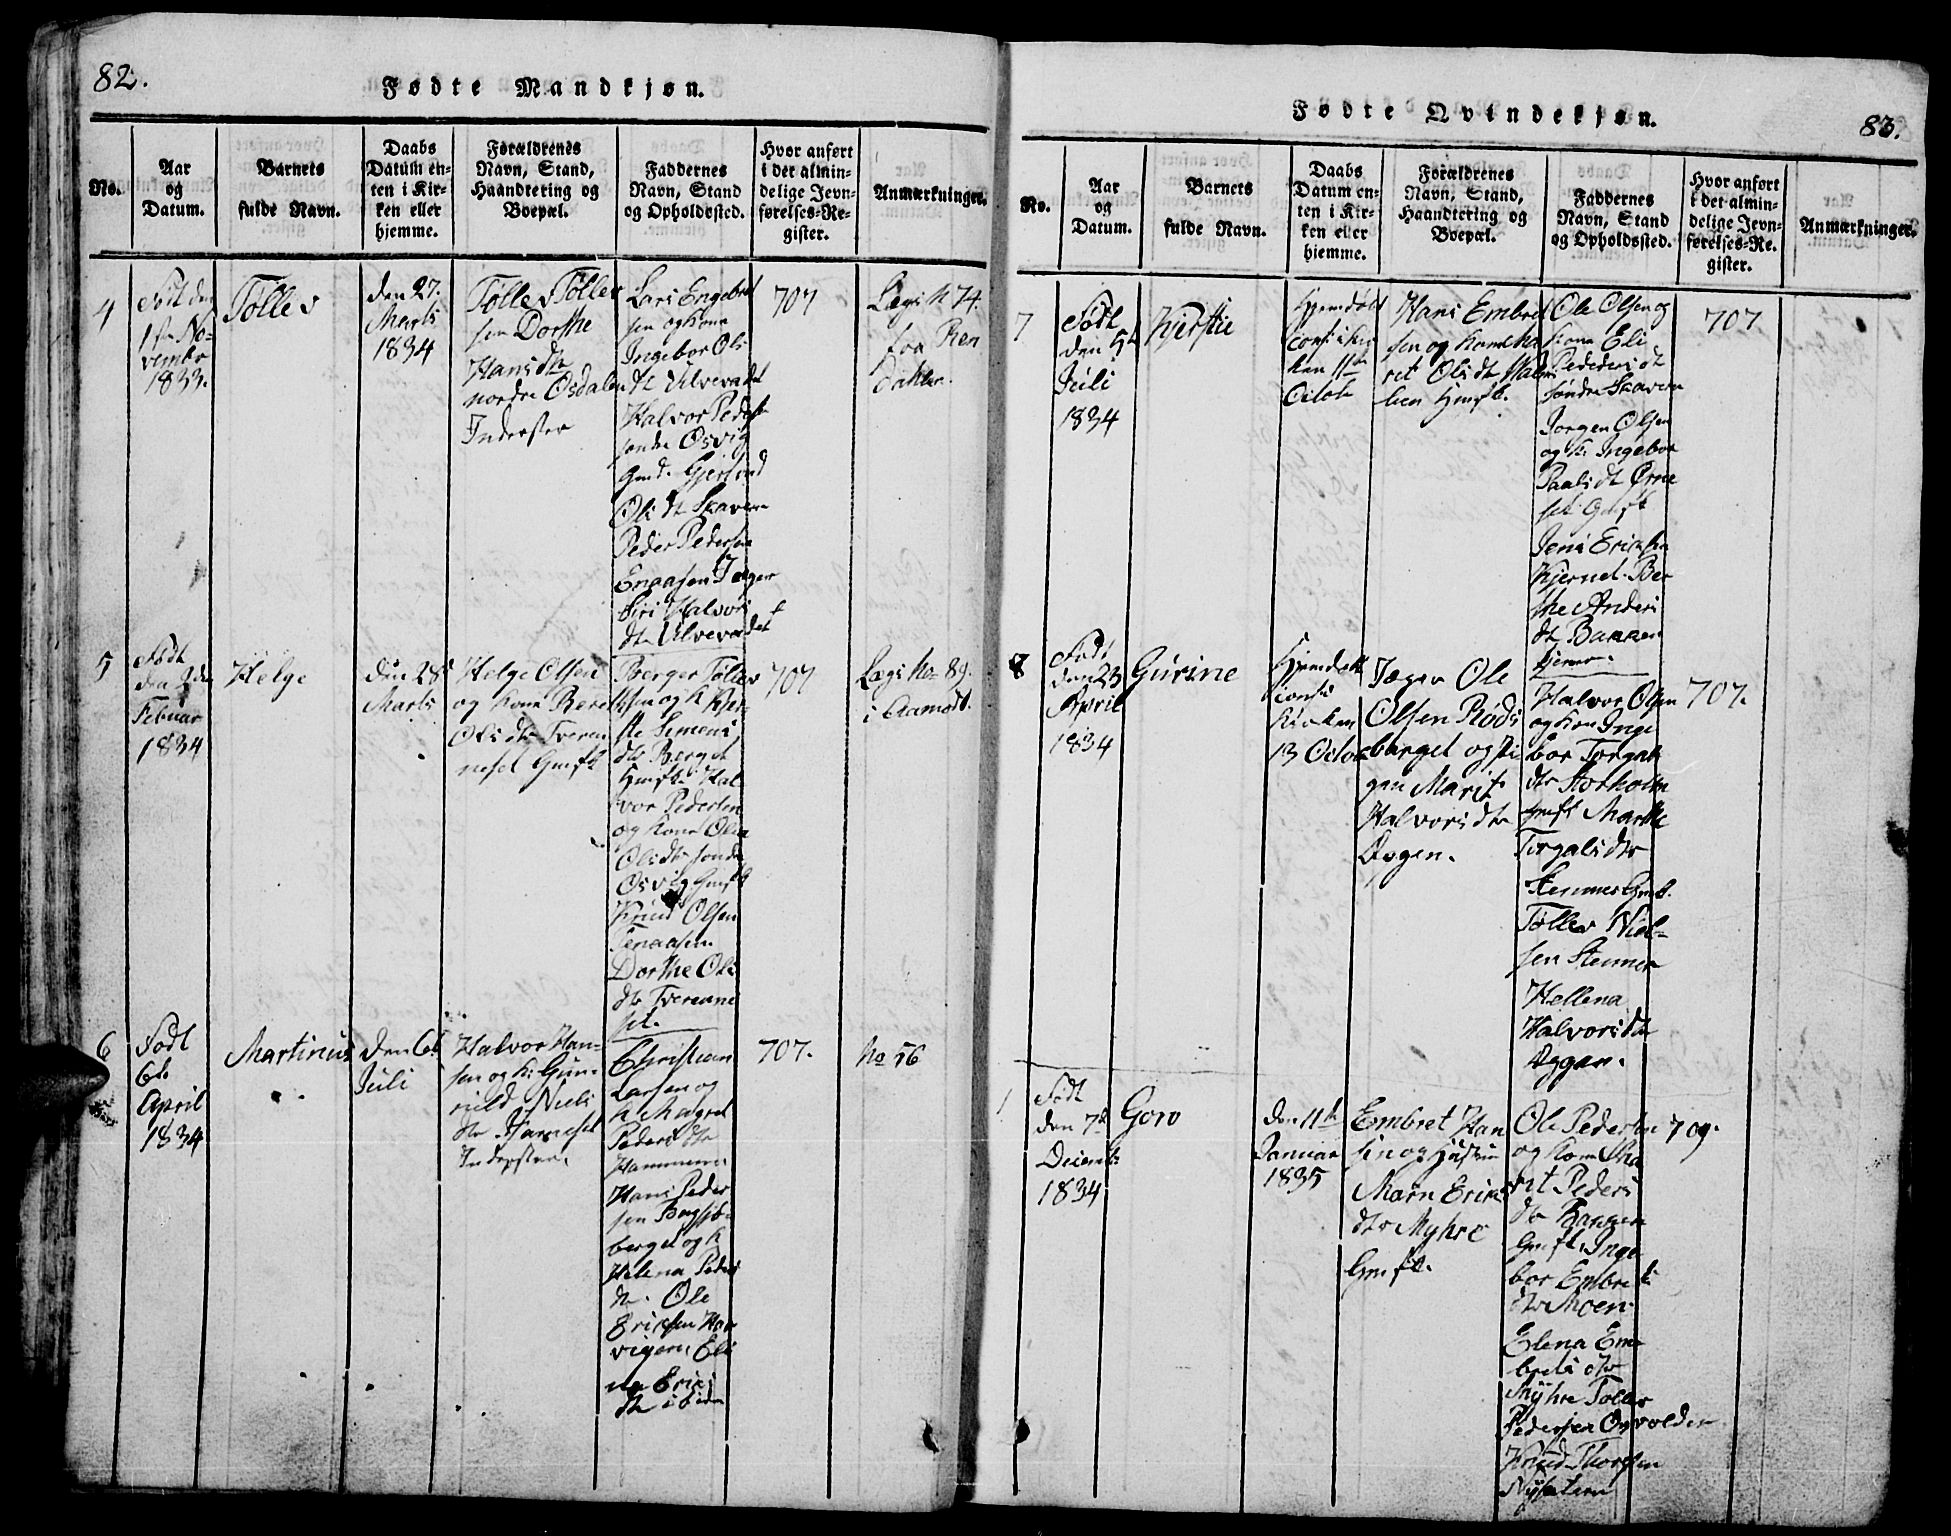 82.
Fødte Mandkjøn.
No.
Aar
og
Datum.
Barnets
fulde Navn.
Daabs
Datum en-
ten i Kir-
ken eller
hjemme.
Forældrenes
Navn, Stand,
Haandtering og
Boepæl.
Faddernes
Navn, Stand
og Opholdssted.
Hvor anført
i det almin-
delige Jevn-
førelses-Re-
gister.
Anmærkninger.
4
Født den
No-
vembr
1833.
Tollev
den 27.
Marts
1834
Tollev Tollev
sen Dorthe
Hansdtr
nordre Osdalen
Inderster
Lars Engebret
sen og Kone
Ingebor Ols
dtr Ulvevadet
Halvor Peders
søndre Osvig
Gmd. Gjertrud
Ols dtr
Peder Pedersen
Enaasen
Siri Halvors
dtr Ulvevadet
707
Lægs N 74.
fra Ren
dahlen.
5
Født
den 2den
Febuar
1834
Helge
den 28
Marts
Helge Olsen
og Kone Bereth
Olsdtr Tveren
neset Gmfk
Berger Tollev
sen og K Kjer
ste Simens
dtr Berget
Hmfk Hal
vor Pedersen
og Kone Olea
Olsdtr sondre
Osvig Gmfk
Knud Olsen
Tenaasen
Dorthe Ols
dtr Tverenne
set.
707
Lægs No 89.
i Aamodt.
6
Født
6te
April
1834
Martinus
Den 6te
Juli
Halvor Han-
sen og K. Gun-
nild Niels
dtr Harneset
Inderster.
Christian
Larsen og
K Magret
Pedersdtr
Hammern
Hans Peder
sen
berget og K
Helena Peders
dtr. Ole
Eriksen Har
vigen, Eli
ne Eriks
dtr
707.
No 56
Fødte Qvindekjøn.
83.
No.
Aar
og
Datum.
Barnets
fulde Navn.
Daabs
Datum en-
ten i Kir-
ken eller
hjemme.
Forældrenes
Navn, Stand,
Haandtering og
Boepæl.
Faddernes
Navn, Stand
og Opholdssted.
Hvor anført
i det almin-
delige Jevn-
førelses-Re-
gister.
Anmærkninger.
7
Født
den 5te
Juli
1834
Kjerstie
Hjemdøbt
conf i Kir
ken 11te
Octob
Hans Embret
sen og Kone Ma
ret Olsdtr Malm
lien Hmfk.
Ole Olsen og
Kone Eli
Peders dt
søndre Skaaren
Jorgen Olsen
og K. Ingebor
Paalsdt Ørne
set Gmfk
Jens Eriksen
Kjernet. Ber
the Anders
dt Bakken
Kjernet.
707
8
Født
den 23
April
1834
Gurine
Hjemdøbt
conf i
Kirken
13 Octob
Jæger Ole
Olsen Røds
berget og Pi
gen Marit
Halvorsdtr
Øggen.
Halvor Olsen
og Kon Inge
bor Torgals
dtr Storholm
gmfk Marthe
Torgalsdtr
Stenmer Gmk.
Tollev Niel-
sen Stenmer
Hellena
Halvorsdtr
Øggen.
707.
1
Født
den 7de
Decemb
1834
Goro
den 11te
Januar
1835
Embret Han
sen og Hustru
Marn Eriks
dtr Myhre
Gmfk.
Ole Pedersen
og Kone Ma
rit Peders
dtr Bakken
Gmfk, Inge
bor Embrets
dtr Moen
Elena Em-
brets dtr
Myhre Tollev
Pedersen Osvolden
Knud Thorsen
Nysætern
709.